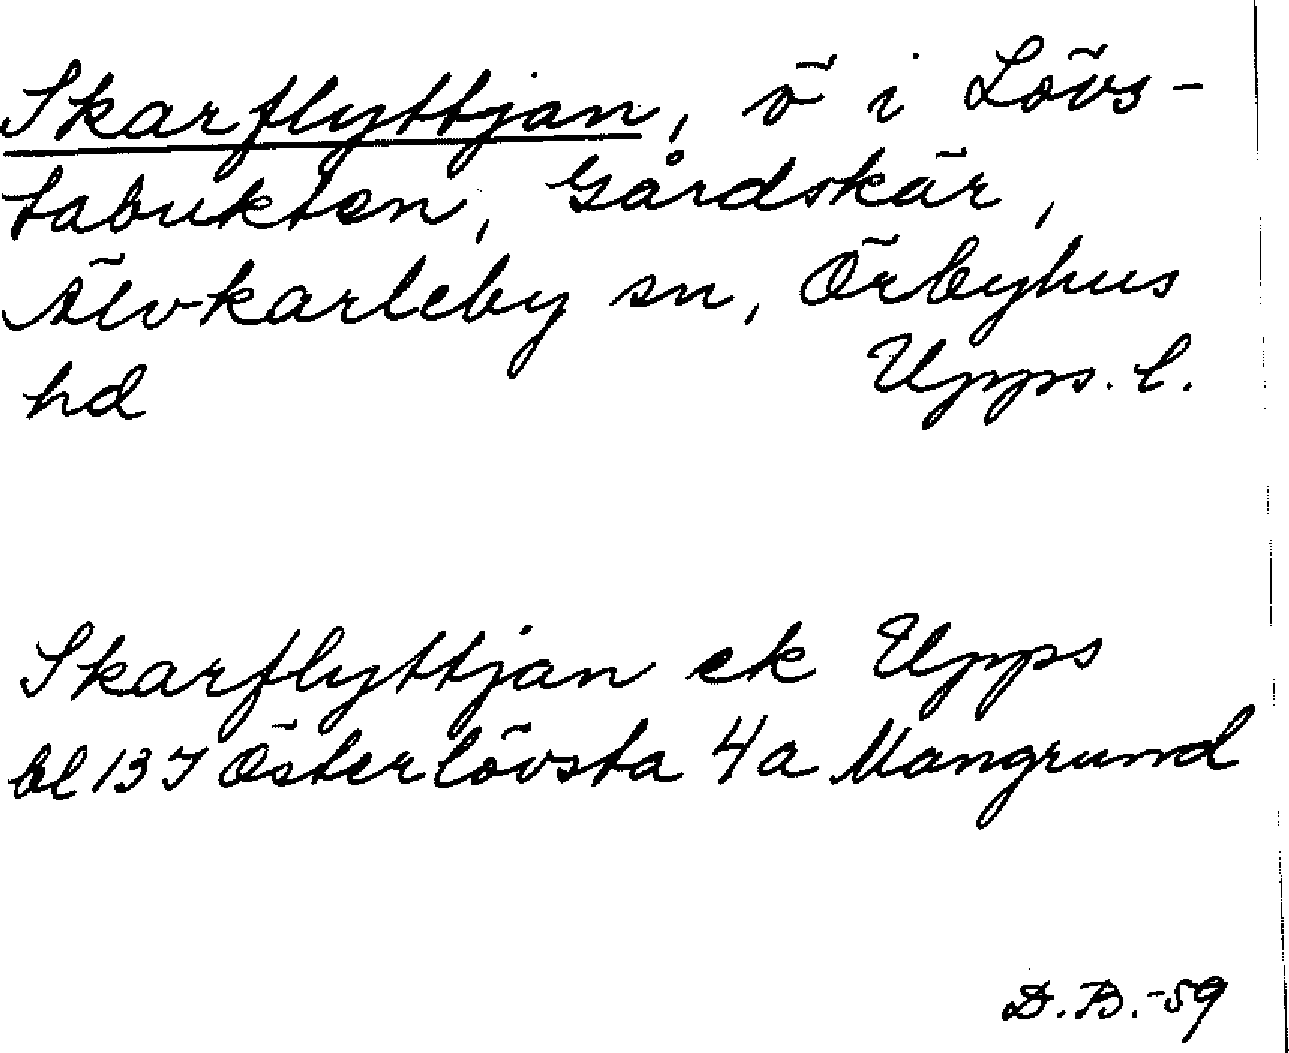 Skarflyttjan, ö i Lövs-
tabukten, Gårdskär,
Älvkarleby sn, Örbyhus
hd Upps. l.
Skarflyttjan ek Upps
bl 13 I Österlövsta 4a Mangrund
D.B.-59